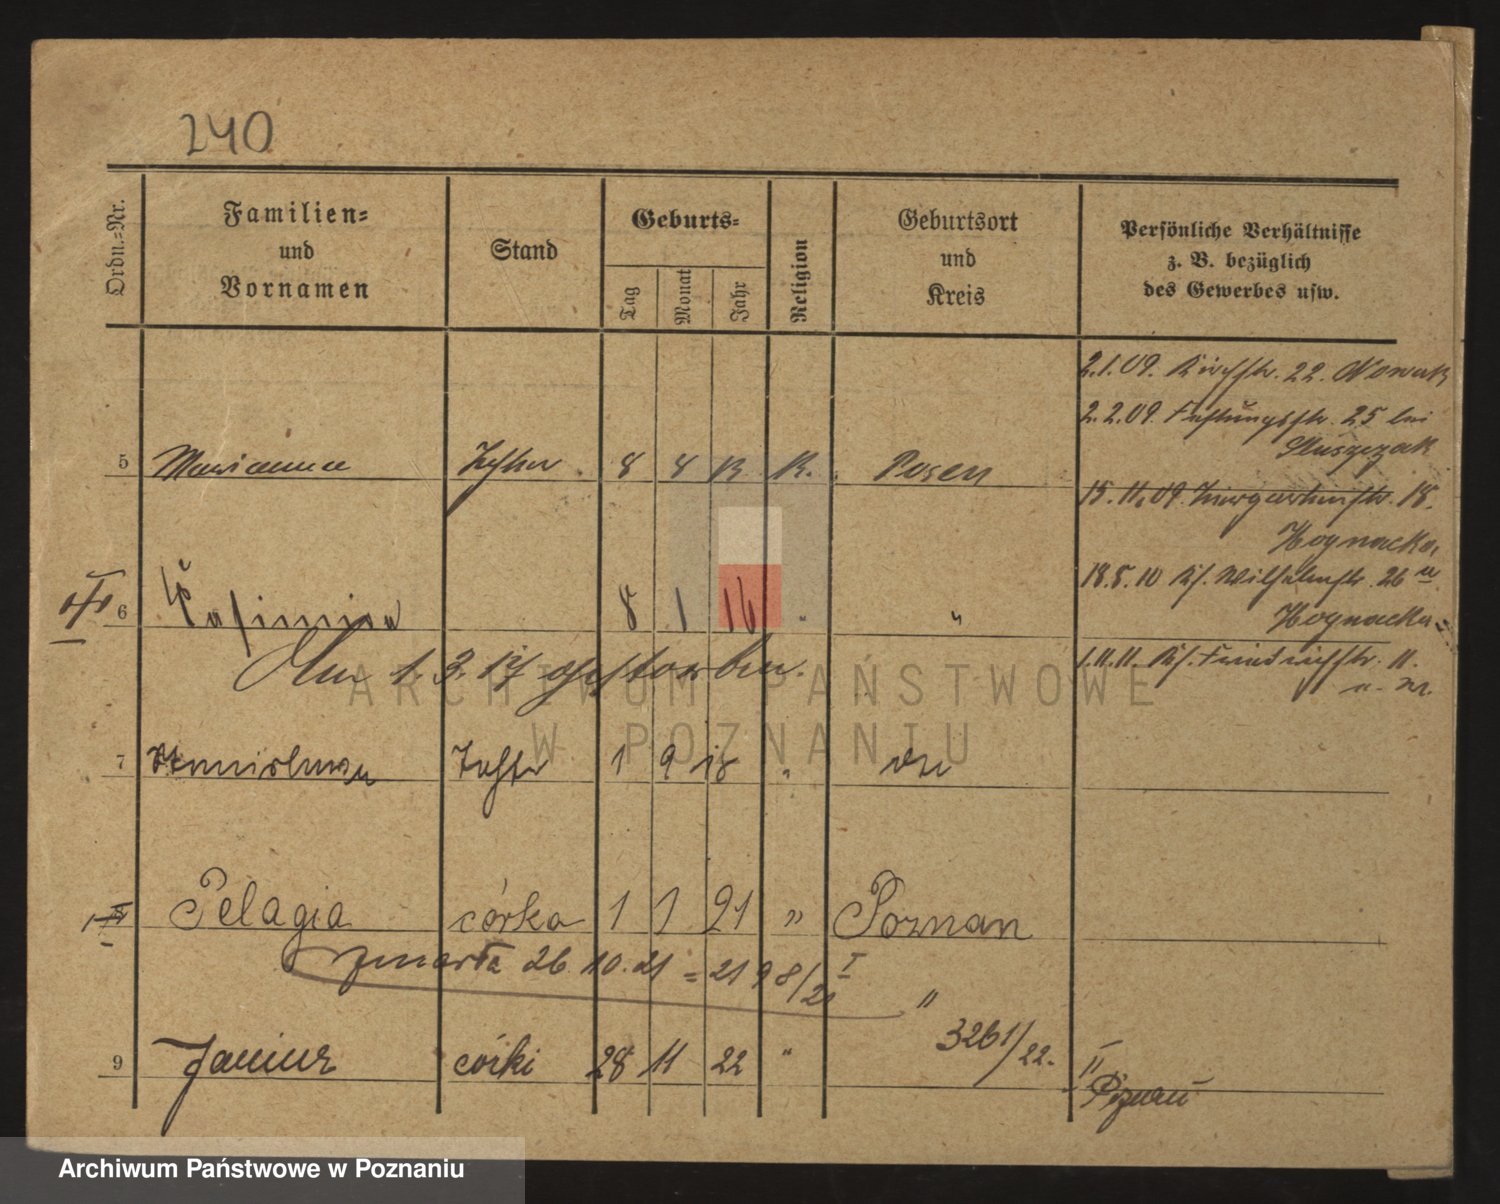 240
Ordn.=Nr.
Familien=
und
Vornamen
Stand
Geburts=
Tag
Monat
Jahr
Religion
Geburtsort
und
Kreis
Persönliche Verhältnisse
z. B. bezüglich
des Gewerbes usw.
2.1.09. Kirchstr. 22. Nowak
2.2.09. Festungsstr. 25 bei
5 Marianna Tochter 8 8 K. Posen
15.11.09. 18.
Hoynacka
18.5.10 Kl. Wilhelmstr. 26
6 Kasimira 8 1 16 "
Hoynacka
Am 1.3.17 gestorben.
1.11.11. Kl. Friedrichstr. 11.
7 Stanislawa Tochter 1 9 18 "
Pelagia córka 1 1 21 " Poznan
zmarła 26.10.21 = 2198/21 I
"
9 Janina córki 28 11 22 " 3261/22. II
Poznań
ARCHIWUM PAŃSTWOWE
W POZNANIU
Archiwum Państwowe w Poznaniu